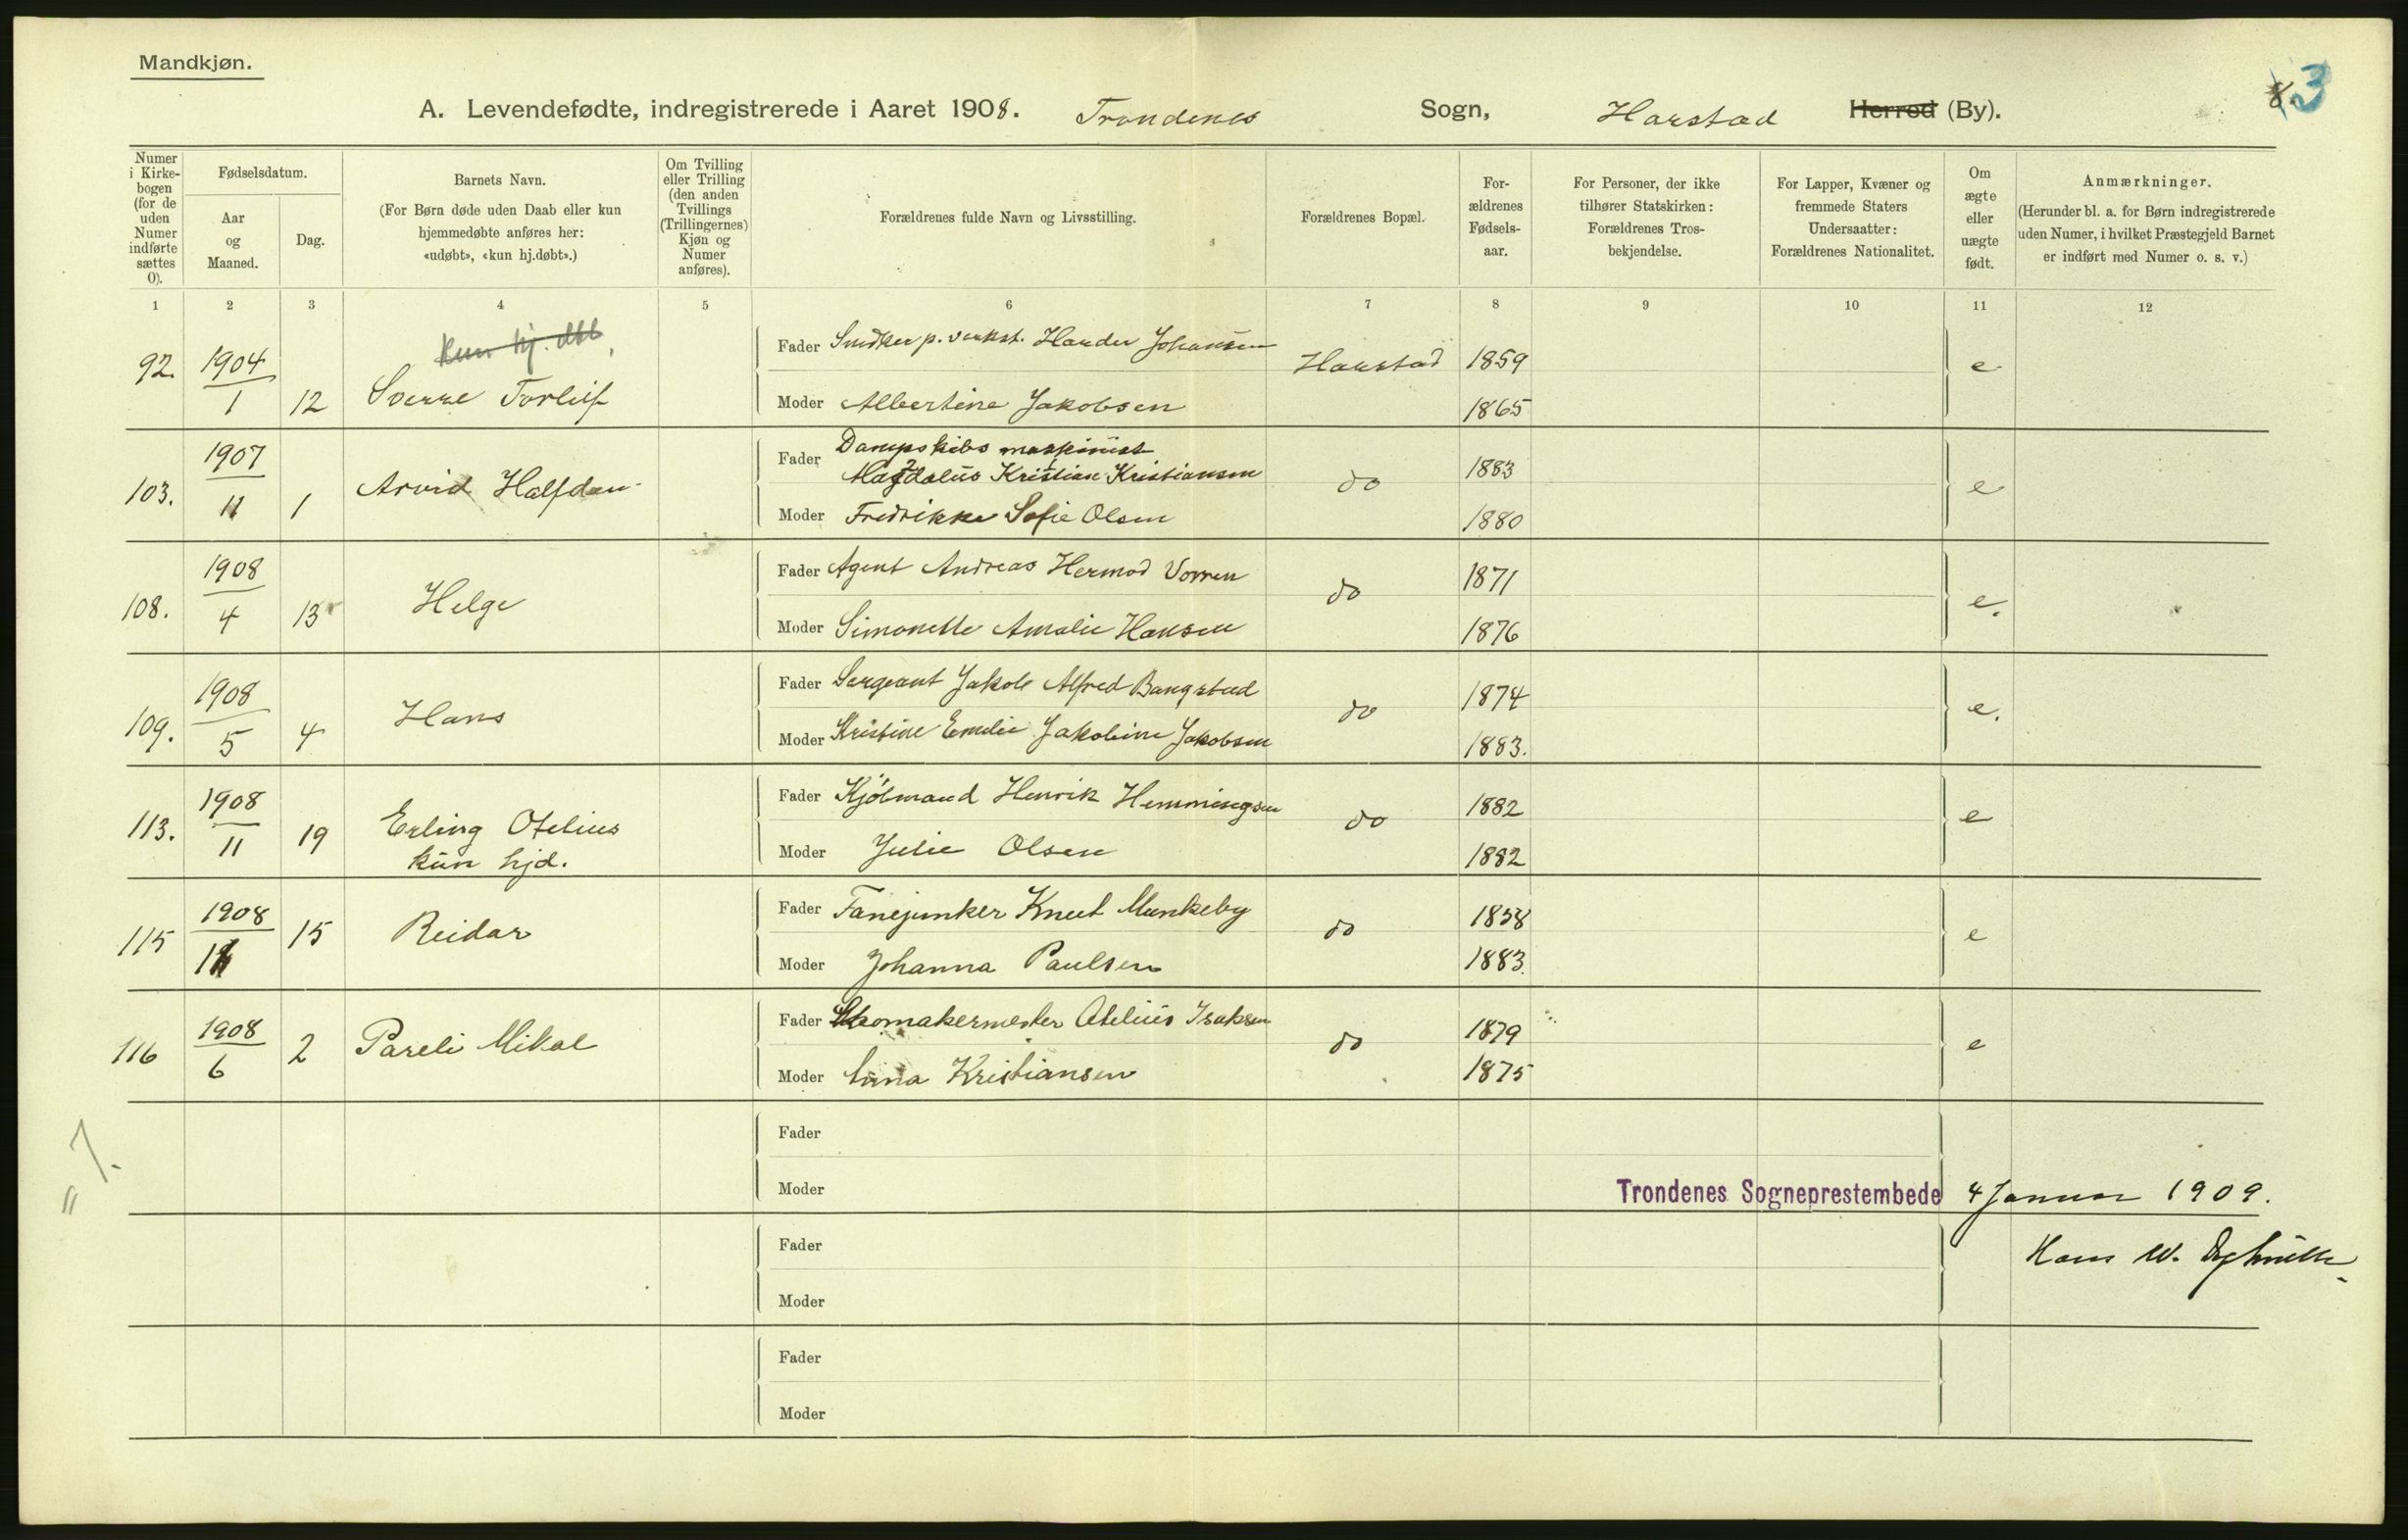 Mandkjøn.
A. Levendefødte, indregistrerede i Aaret 1908. Trondenes Sogn, Harstad Herred (By).
8.
3
Numer i Kirkebogen (for de uden Numer indførte sættes 0).
Fødselsdatum.
Aar og Maaned.
Dag.
Barnets Navn.
(For Børn døde uden Daab eller kun hjemmedøbte anføres her: «udøbt», «kun hj.døbt».)
Om Tvilling eller Trilling (den anden Tvillings (Trillingernes) Kjøn og Numer anføres).
Forældrenes fulde Navn og Livsstilling.
Forældrenes Bopæl.
Forældrenes Fødselsaar.
For Personer, der ikke tilhører Statskirken: Forældrenes Trosbekjendelse.
For Lapper, Kvæner og fremmede Staters Undersaatter: Forældrenes Nationalitet.
Om ægte eller uægte født.
Anmærkninger.
(Herunder bl. a. for Børn indregistrerede uden Numer, i hvilket Præstegjeld Barnet er indført med Numer o. s. v.)
1 2 3 4 5 6 7 8 9 10 11 12
kun hj. dbt
92. 1904 Fader Snedker p. verkst. Hander Johansen Harstad 1859 e
1 12 Sverre Torleif Moder Albertine Jakobsen 1865
1907 Fader Dampskibs maskinist
103. Arvid Halfdan Magdalus Kristian Kristiansen do 1883 e
11 1 Moder Fredrikke Sofie Olsen 1880
1908 Fader Agent Andreas Hermod Vorren do 1871
108. 4 13 Helge Moder Simonette Amalie Hansen 1876 e.
1908 Fader Sergeant Jakob Alfred Bangstad do 1874 e.
109. 5 4 Hans Moder Kristine Emelie Jakobine Jakobsen 1883.
1908 Fader Kjölmand Henrik Hemmingsen do 1882 e
113. 11 19 Erling Otelius Moder Julie Olsen 1882
kun hjd.
1908 Fader Fanejunker Knut Munkeby do 1858 e
115 11 15 Reidar Moder Johanna Paulsen 1883.
1908 Fader Skomakermester Otelius Isaksen do 1879 e
116 6 2 Pareli Mikal Moder Anna Kristiansen 1875
Fader
7.
Moder
Trondenes Sogneprestembede 4 Januar 1909.
"
Fader
Hans W.
Moder
Fader
Moder